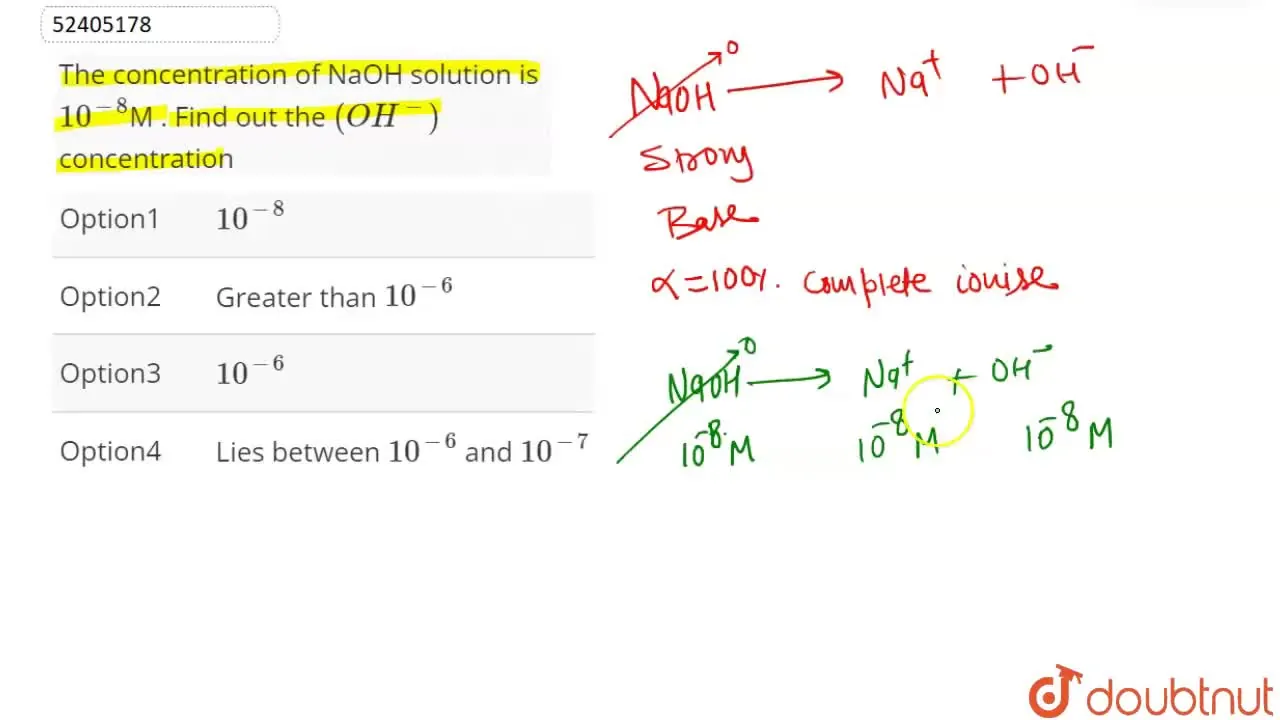 52405178
The concentration of NaOH solution is
10⁻⁸M . Find out the (OH⁻)
concentration
Option1 10⁻⁸
Option2 Greater than 10⁻⁶
Option3 10⁻⁶
Option4 Lies between 10⁻⁶ and 10⁻⁷
NaOH⁰ ⟶ Na⁺ + OH⁻
Strong
Base
α = 100%. Complete ionise
NaOH⁰ ⟶ Na⁺ + OH⁻
10⁻⁸M 10⁻⁸M 10⁻⁸M
doubtnut